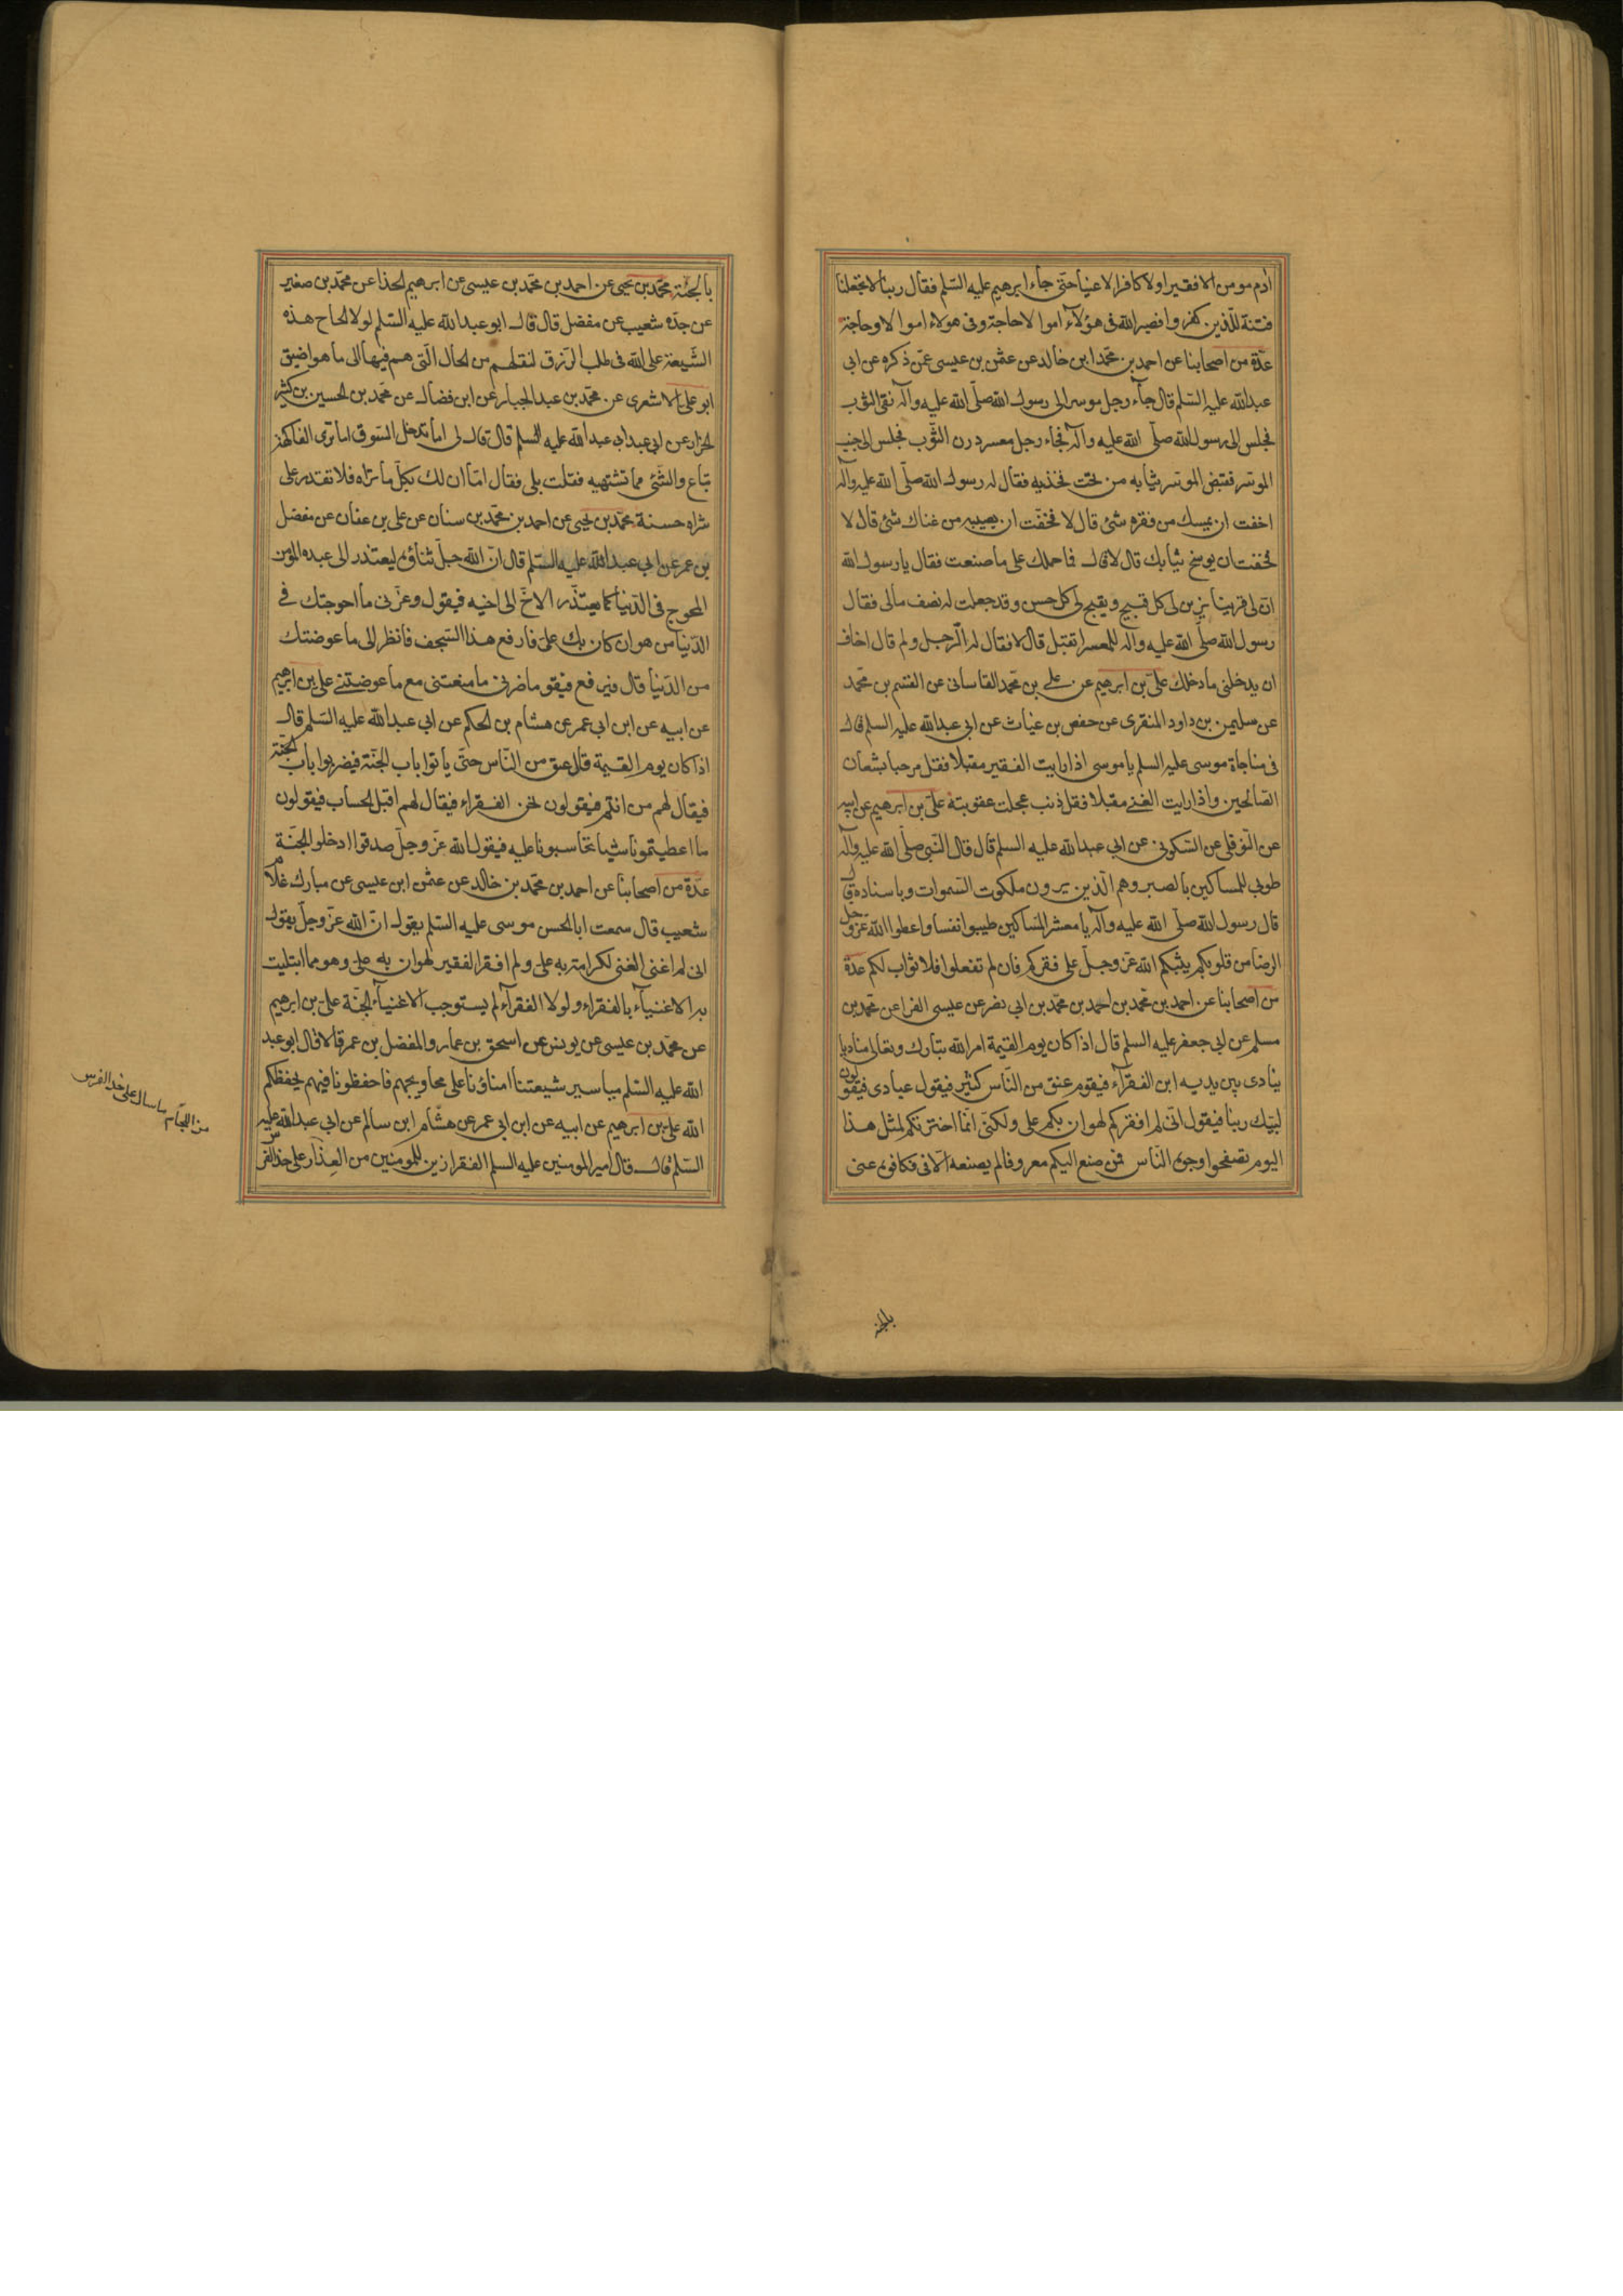 ادم مومن الا فقيرا ولا كافرا الا غنيا حتى جاء ابرهيم عليه السلم فقال ربنا لا تجعلنا
فتنة للذين كفروا فصير الله فى هؤلاء اموالا وحاجة وفى هولاء اموالا وحاجة
عدة من اصحابنا عن احمد بن محمد ابن خالد عن عثمن بن عيسى عمن ذكره عن ابى
عبد الله عليه السلم قال جاء رجل موسر الى رسول الله صلى الله عليه وآله نقى الثوب
فجلس الى رسول الله صلى الله عليه وآله فجاء رجل معسر درن الثوب فجلس الى جنب
الموسر فقبض الموسر ثيابه من تحت فخذيه فقال له رسول الله صلى الله عليه وآله
اخفت ان يمسك من فقره شئ قال لا فخفت ان يصيبه من غناك شئ قال لا
فخفت ان يوسخ ثيابك قال لا قال فما حملك على ما صنعت فقال يا رسول الله
ان لى قرينا يزين لى كل قبيح ويقبح لى كل حسن وقد جعلت له نصف مالى فقال
رسول الله صلى الله عليه واله للمعسر اتقبل قال لا فقال له الرجل ولم قال اخاف
ان يدخلنى ما دخلك على بن ابرهيم عن على بن محمد القاسانى عن القسم بن محمد
عن سليمن بن داود المنقرى عن حفص بن غياث عن ابى عبد الله عليه السلم قال
فى مناجاة موسى عليه السلم يا موسى اذا رايت الفقير مقبلا فقل مرحبا بشعار
الصالحين واذا رايت الغنى مقبلا فقل ذنب عجلت عقوبته على بن ابرهيم عن ابيه
عن النوفلى عن السكونى عن ابى عبد الله عليه السلم قال قال النبى صلى الله عليه وآله
طوبى للمساكين بالصبر وهم الذين يرون ملكوت السموات وباسناده قال
قال رسول الله صلى الله عليه وآله يا معشر المساكين طيبوا نفسا واعطوا الله عز وجل
الرضا من قلوبكم يثبكم الله عز وجل على فقركم فان لم تفعلوا فلا ثواب لكم عدة
من اصحابنا عن احمد بن محمد بن احمد بن محمد بن ابى نصر عن عيسى الفرا عن محمد بن
مسلم عن ابى جعفر عليه السلم قال اذا كان يوم القيمة امر الله تبارك وتعالى مناديا
ينادى بين يديه اين الفقرآء فيقوم عنق من الناس كثير فيقول عبادى فيقولون
لبيك ربنا فيقول انى لم افقركم لهوان بكم على ولكنى انما اخترتكم لمثل هذا
اليوم تصفحوا وجوه الناس فمن صنع اليكم معروفا لم يصنعه الا فى فكافوه عنى
بالجنة
بالجنة محمد بن يحيى عن احمد بن محمد بن عيسى عن ابرهيم الحذا عن محمد بن صغير
عن جده شعيب عن مفضل قال قال ابو عبد الله عليه السلم لولا الحاح هذه
الشيعة على الله فى طلب الرزق لنقلهم من الحال التى هم فيها الى ما هو اضيق
ابو على الاشعرى عن محمد بن عبد الجبار عن ابن فضال عن محمد بن الحسين بن كثير
الخزاز عن ابى عبد الله عليه السلم قال قال لى اما تدخل السوق اما ترى الفاكهة
تباع والشئ مما تشتهيه فقلت بلى فقال اما ان لك بكل ما تراه فلا تقدر على
شراه حسنة محمد بن يحيى عن احمد بن محمد بن سنان عن على بن عفان عن مفضل
بن عمر عن ابى عبد الله عليه السلم قال ان الله جل ثناؤه ليعتذر الى عبده المؤمن
المحوج فى الدنيا كما يعتذر الاخ الى اخيه فيقول وعزتى ما احوجتك فى
الدنيا من هوان كان بك على فارفع هذا السجف فانظر الى ما عوضتك
من الدنيا قال فيرفع فيقو ما ضرنى ما منعتنى مع ما عوضتنى على بن ابرهيم
عن ابيه عن ابن ابى عمر عن هشام بن الحكم عن ابى عبد الله عليه السلم قال
اذا كان يوم القيمة قام عنق من الناس حتى ياتوا باب الجنة فيضربوا باب الجنة
فيقال لهم من انتم فيقولون نحن الفقراء فيقال لهم اقبل الحساب فيقولون
ما اعطيتمونا شيا تحاسبونا عليه فيقول الله عز وجل صدقوا ادخلوا الجنة
عدة من اصحابنا عن احمد بن محمد بن خالد عن عثمن ابن عيسى عن مبارك غلام
شعيب قال سمعت ابا الحسن موسى عليه السلم يقول ان الله عز وجل يقول
انى لم اغنى الغنى لكرامة به على ولم افقر الفقير لهوان به على وهو مما ابتليت
به الاغنيآء بالفقراء ولولا الفقرآء لم يستوجب الاغنيآء الجنة على بن ابرهيم
عن محمد بن عيسى عن يونس عن اسحق بن عمار والمفضل بن عمر قالا قال ابو عبد
الله عليه السلم مياسير شيعتنا امناؤنا على محاويجهم فاحفظونا فيهم يحفظكم
الله على بن ابرهيم عن ابيه عن ابن ابى عمر عن هشام ابن سالم عن ابى عبد الله عليه
السلم قال قال امير المومنين عليه السلم الفقر ازين للمومنين من العذار على خد الفرس
من اللجام ما سال على خد الفرس